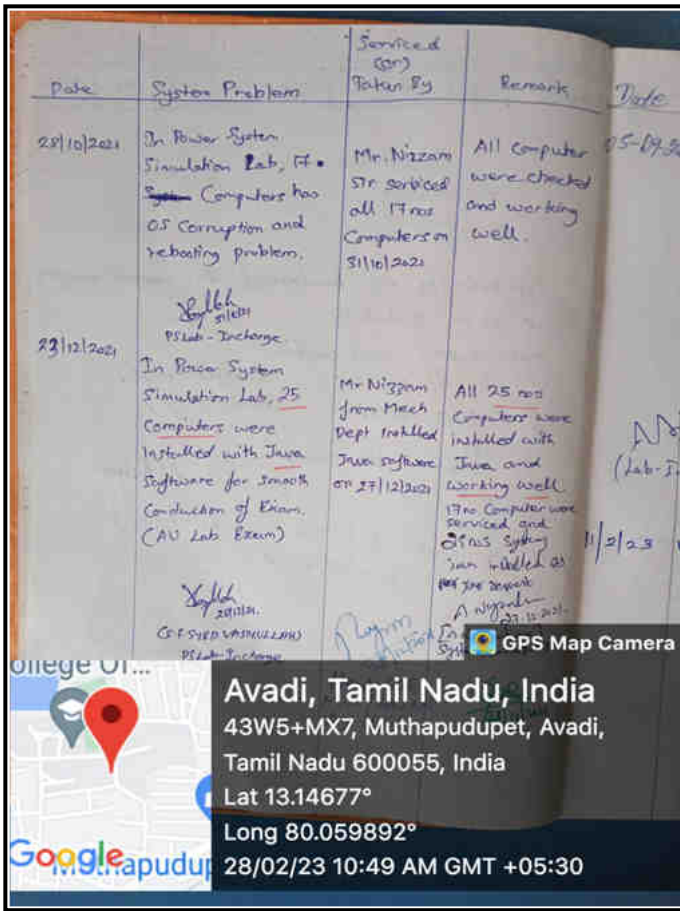 Date
System Problem
Serviced
(or)
Taken By
Remark
Date
28/10/2021
In Power System
Simulation Lab, 17
Computers has
OS Corruption and
rebooting problem.
PSLab - Incharge
Mr. Nizzam
sir serviced
all 17nos
Computers on
31/10/2021
All Computer
were checked
and working
well.
23/12/2021
In Power System
Simulation Lab, 25
Computers were
Installed with Java
Software for smooth
Conduction of Exam.
(AU Lab Exam)
PSLab-Incharge
Mr Nizzam
from Mech
Dept Installed
Java software
on 27/12/2021
All 25 nos
Computers were
installed with
Java and
working well
17no Computer were
serviced and
System
as
27.12.2021
05-09-20
(Lab-I
11/2/23
GPS Map Camera
ollege Of...
Google
apudup
Avadi, Tamil Nadu, India
43W5+MX7, Muthapudupet, Avadi,
Tamil Nadu 600055, India
Lat 13.14677°
Long 80.059892°
28/02/23 10:49 AM GMT +05:30